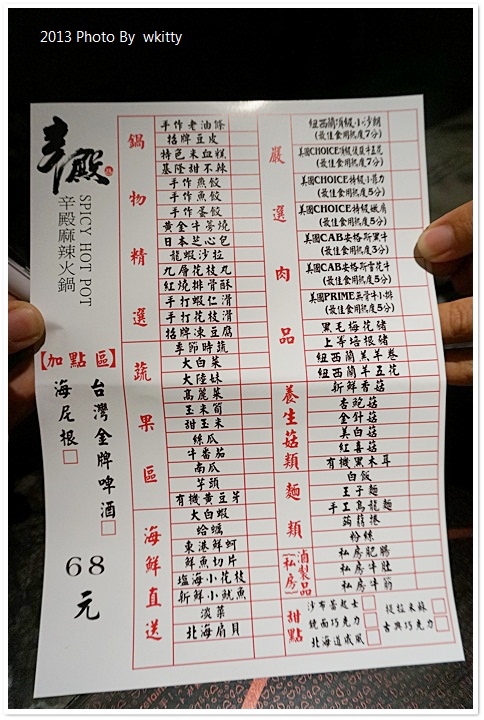 2013 Photo By wkitty
辛殿
SPICY HOT POT
辛殿麻辣火鍋
【加點區】
台灣金牌啤酒□
海尼根□
68元
鍋物精選
手作老油條
招牌豆皮
特色米血糕
基隆甜不辣
手作燕餃
手作魚餃
手作蛋餃
黃金牛蒡燒
日本芝心包
龍蝦沙拉
九層花枝丸
紅燒排骨酥
手打蝦仁滑
手打花枝滑
招牌凍豆腐
蔬果區
季節時蔬
大白菜
大陸妹
高麗菜
玉米筍
甜玉米
絲瓜
牛番茄
南瓜
芋頭
有機黃豆芽
海鮮直送
大白蝦
蛤蠣
東港鮮蚵
鮮魚切片
塩海小花枝
新鮮小魷魚
淡菜
北海扇貝
嚴選肉品
紐西蘭頂級小沙朗
(最佳食用熟度7分)
美國CHOICE頂級後腿牛五花
(最佳食用熟度7分)
美國CHOICE特級小菲力
(最佳食用熟度5分)
美國CHOICE特級嫩肩
(最佳食用熟度5分)
美國CAB安格斯黑牛
(最佳食用熟度3分)
美國CAB安格斯雪花牛
(最佳食用熟度5分)
美國PRIME無骨牛小排
(最佳食用熟度5分)
黑毛梅花豬
上等培根豬
紐西蘭羔羊卷
紐西蘭羊五花
養生菇類
新鮮香菇
杏鮑菇
金針菇
美白菇
紅喜菇
有機黑木耳
麵類
白飯
王子麵
手工烏龍麵
蒟蒻捲
粉絲
滷製品
(私房)
私房肥腸
私房牛肚
私房牛筋
甜點
沙布蕾起士□
提拉米蘇□
鏡面巧克力□
古典巧克力□
北海道戚風□